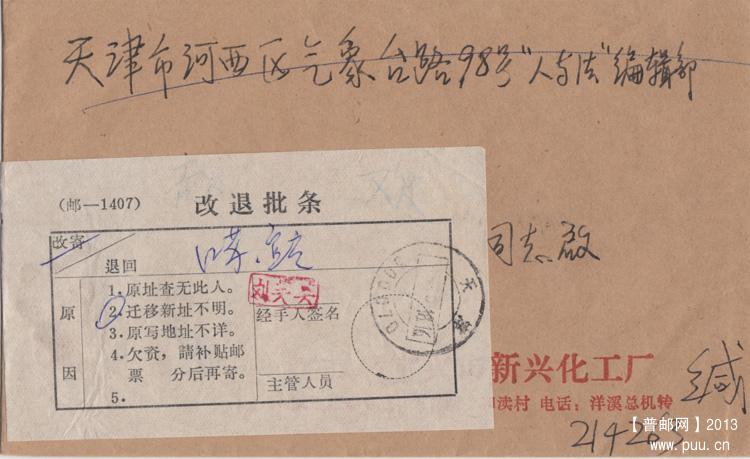 天津市河西区气象台路98号"人与法"编辑部
(邮—1407) 改退批条
改寄
退回
原因
1. 原址查无此人。
2. 迁移新址不明。
3. 原写地址不详。
4. 欠资，請补贴邮
票 分后再寄。
5.
经手人签名
主管人员
同志启
新兴化工厂 缄
渎村 电话：洋溪总机转
【普邮网】2013
www.puu.cn